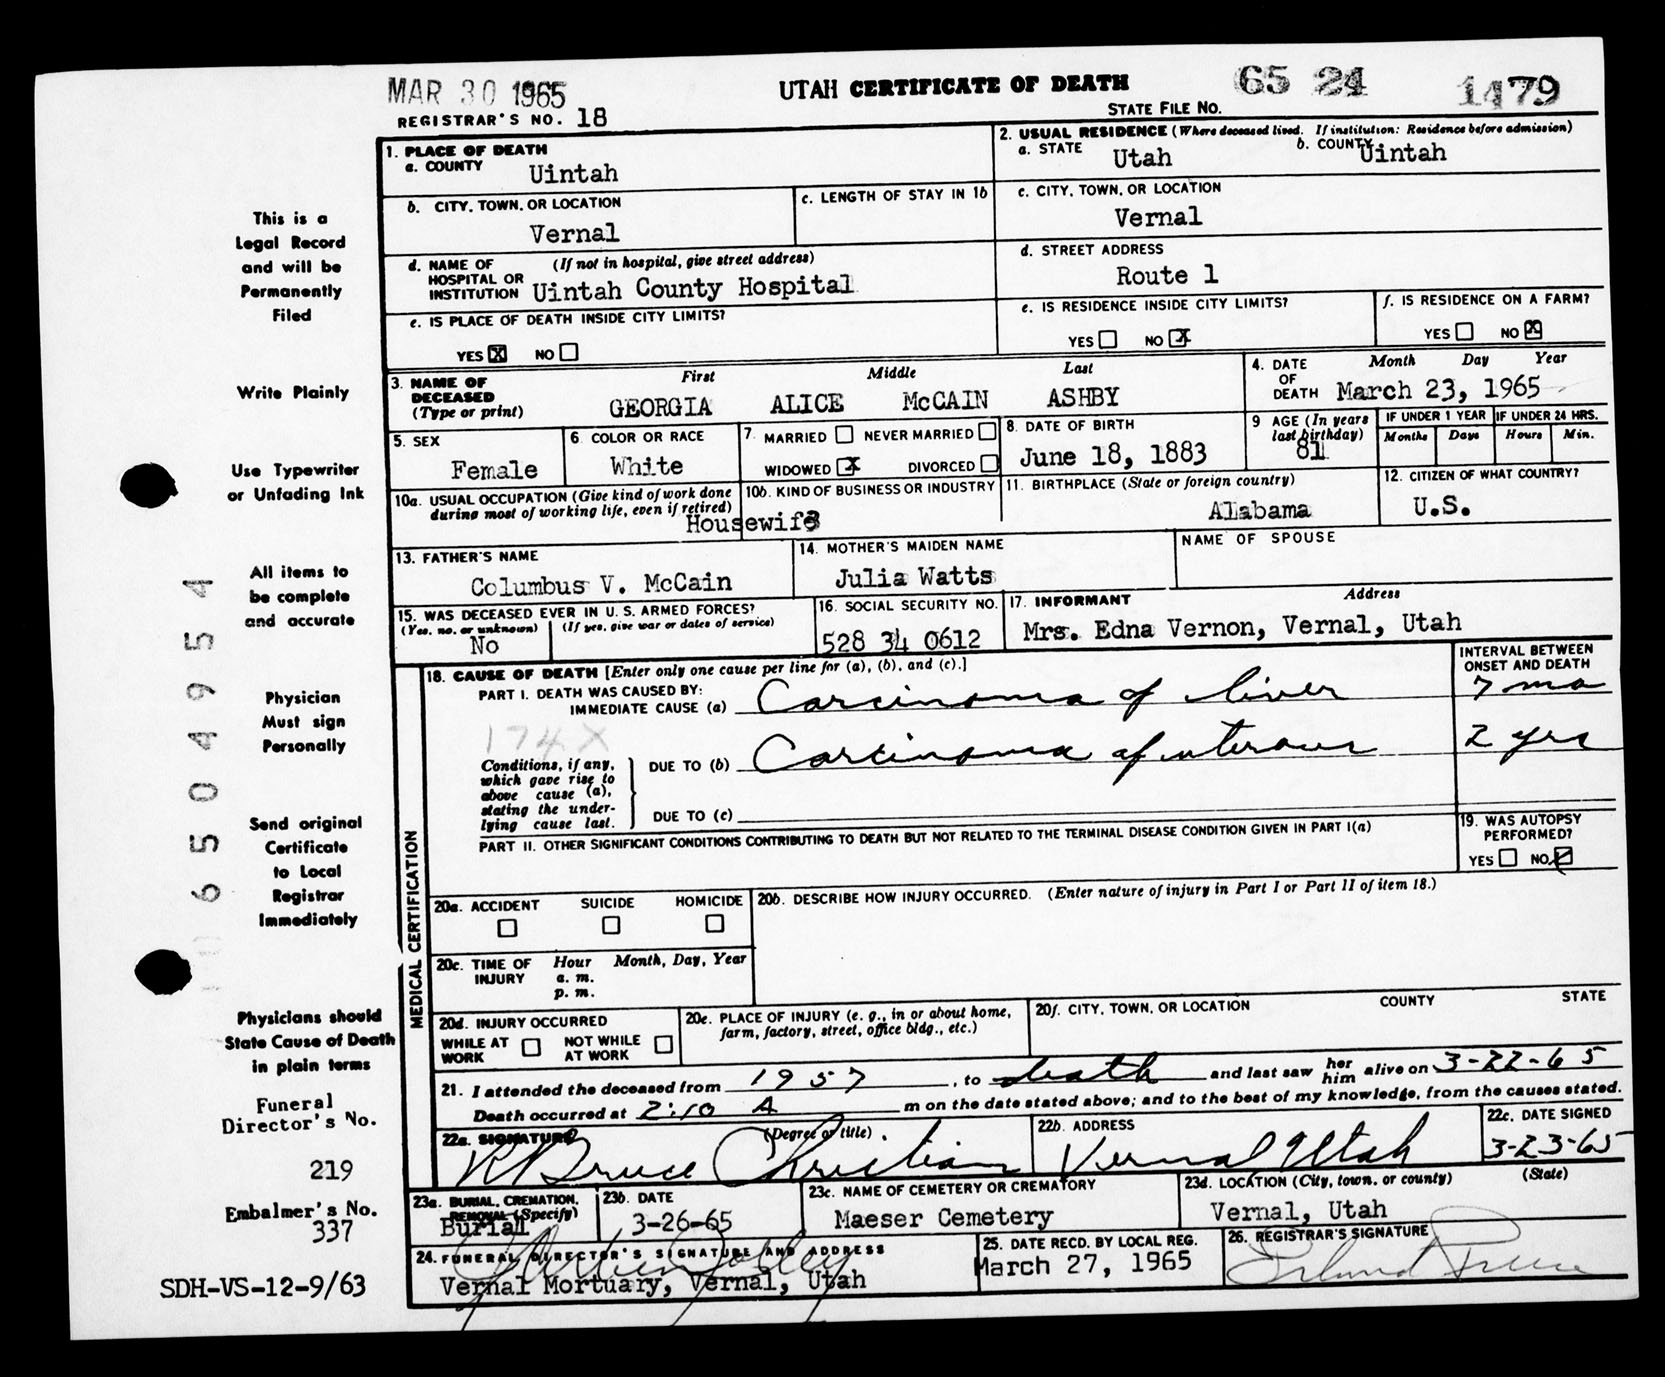 MAR 30 1965
UTAH CERTIFICATE OF DEATH
65 24 1479
STATE FILE NO.
REGISTRAR'S NO. 18
1. PLACE OF DEATH
a. COUNTY Uintah
2. USUAL RESIDENCE (Where deceased lived. If institution: Residence before admission)
a. STATE Utah b. COUNTY Uintah
b. CITY, TOWN, OR LOCATION Vernal
c. LENGTH OF STAY IN 1b
c. CITY, TOWN, OR LOCATION
Vernal
d. NAME OF HOSPITAL OR INSTITUTION (If not in hospital, give street address)
Uintah County Hospital
d. STREET ADDRESS
Route 1
e. IS PLACE OF DEATH INSIDE CITY LIMITS?
YES X NO
e. IS RESIDENCE INSIDE CITY LIMITS?
YES NO X
f. IS RESIDENCE ON A FARM?
YES NO X
3. NAME OF DECEASED (Type or print)
First Middle Last
GEORGIA ALICE McCAIN ASHBY
4. DATE OF DEATH Month Day Year
March 23, 1965
5. SEX
Female
6. COLOR OR RACE
White
7. MARRIED NEVER MARRIED
WIDOWED X DIVORCED
8. DATE OF BIRTH
June 18, 1883
9 AGE (In years last birthday)
81
IF UNDER 1 YEAR
Months Days
IF UNDER 24 HRS.
Hours Min.
10a. USUAL OCCUPATION (Give kind of work done during most of working life, even if retired)
Housewife
10b. KIND OF BUSINESS OR INDUSTRY
11. BIRTHPLACE (State or foreign country)
Alabama
12. CITIZEN OF WHAT COUNTRY?
U.S.
13. FATHER'S NAME
Columbus V. McCain
14. MOTHER'S MAIDEN NAME
Julia Watts
NAME OF SPOUSE
15. WAS DECEASED EVER IN U. S. ARMED FORCES?
(Yes, no, or unknown) (If yes, give war or dates of service)
No
16. SOCIAL SECURITY NO.
528 34 0612
17. INFORMANT Address
Mrs. Edna Vernon, Vernal, Utah
MEDICAL CERTIFICATION
18. CAUSE OF DEATH [Enter only one cause per line for (a), (b), and (c).]
INTERVAL BETWEEN ONSET AND DEATH
PART I. DEATH WAS CAUSED BY:
IMMEDIATE CAUSE (a) Carcinoma of liver 7 mo
174 X
Conditions, if any, which gave rise to above cause (a), stating the underlying cause last.
DUE TO (b) Carcinoma of uterous 2 yrs
DUE TO (c)
PART II. OTHER SIGNIFICANT CONDITIONS CONTRIBUTING TO DEATH BUT NOT RELATED TO THE TERMINAL DISEASE CONDITION GIVEN IN PART I(a)
19. WAS AUTOPSY PERFORMED?
YES NO
20a. ACCIDENT SUICIDE HOMICIDE
20b. DESCRIBE HOW INJURY OCCURRED. (Enter nature of injury in Part I or Part II of item 18.)
20c. TIME OF INJURY Hour Month, Day, Year
a. m.
p. m.
20d. INJURY OCCURRED
WHILE AT WORK NOT WHILE AT WORK
20e. PLACE OF INJURY (e. g., in or about home, farm, factory, street, office bldg., etc.)
20f. CITY, TOWN, OR LOCATION COUNTY STATE
21. I attended the deceased from 1957, to death and last saw her him alive on 3-22-65
Death occurred at 2:10 A m on the date stated above; and to the best of my knowledge, from the causes stated.
22a. SIGNATURE (Degree or title)
R Bruce Christian
22b. ADDRESS
Vernal Utah
22c. DATE SIGNED
3-23-65
23a. BURIAL, CREMATION, REMOVAL (Specify)
Burial
23b. DATE
3-26-65
23c. NAME OF CEMETERY OR CREMATORY
Maeser Cemetery
23d. LOCATION (City, town, or county) (State)
Vernal, Utah
24. FUNERAL DIRECTOR'S SIGNATURE AND ADDRESS
Vernal Mortuary, Vernal, Utah
25. DATE RECD. BY LOCAL REG.
March 27, 1965
26. REGISTRAR'S SIGNATURE
This is a
Legal Record
and will be
Permanently
Filed
Write Plainly
Use Typewriter
or Unfading Ink
All items to
be complete
and accurate
Physician
Must sign
Personally
Send original
Certificate
to Local
Registrar
Immediately
Physicians should
State Cause of Death
in plain terms
Funeral
Director's No.
219
Embalmer's No.
337
SDH-VS-12-9/63
65049954